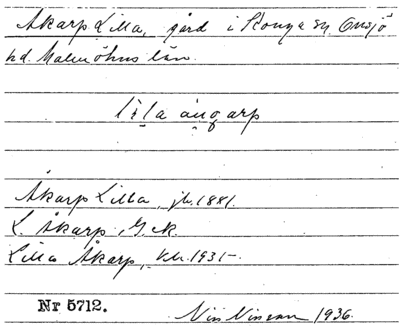 Åkarp Lilla, gård i Stouga sn, Onsjö
hd. Malmöhus län.
lila ångarp
Åkarp Lilla, jb. 1881.
L. Åkarp, G.k.
Lilla Åkarp, kb. 1931-
Nr 5712.
Nils Nilsson 1936.